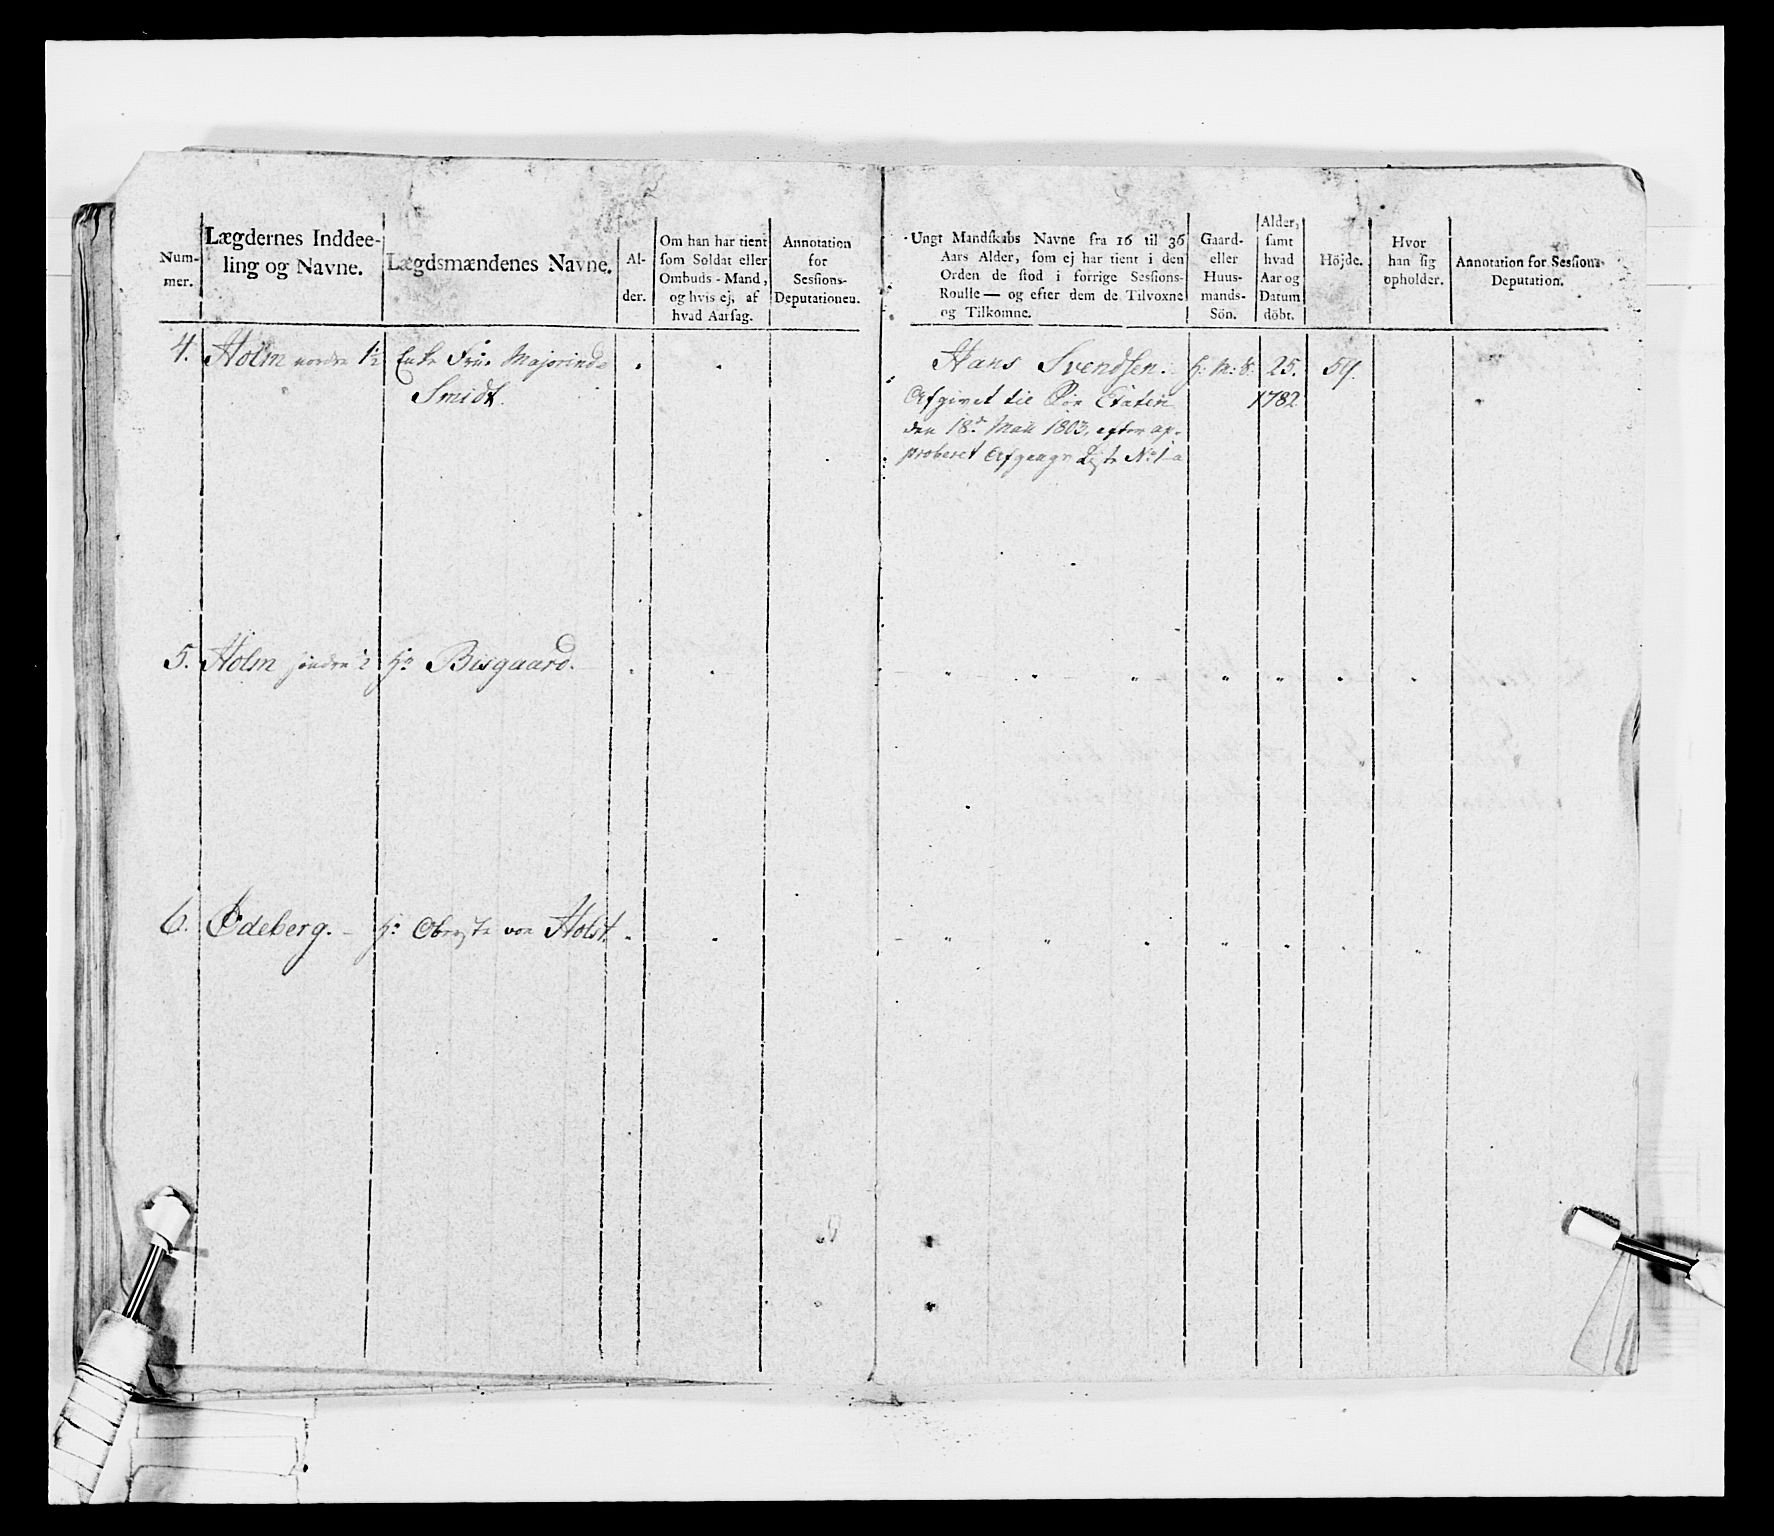 Num-
mer.
Lægdernes Inddee-
ling og Navne.
Lægdsmændenes Navne.
Al-
der.
Om han har tient
som Soldat eller
Ombuds-Mand,
og hvis ej, af
hvad Aarsag.
Annotation
for
Sessions-
Deputationen.
Ungt Mandskabs Navne fra 16 til 36
Aars Alder, som ej har tient i den
Orden de stod i forrige Sessions-
Roulle — og efter dem de Tilvoxne
og Tilkomne.
Gaard-
eller
Huus-
mands-
Sön.
Alder,
samt
hvad
Aar og
Datum
döbt.
Höjde.
Hvor
han sig
opholder.
Annotation for Sessions-
Deputation.
4. Holm nordre 1/2 Enke Frue Majorinde
Smidt.
Hans Svendsen. H: M: S. 25. 59.
1782
Afgivet til Etaten
den 18de Maii 1803, efter ap-
proberet Afgangs Liste No 1 a
5. Holm søndre 1/2 Hr Bisgaard.
6. Ødeberg. Hr Oberste von Holst.